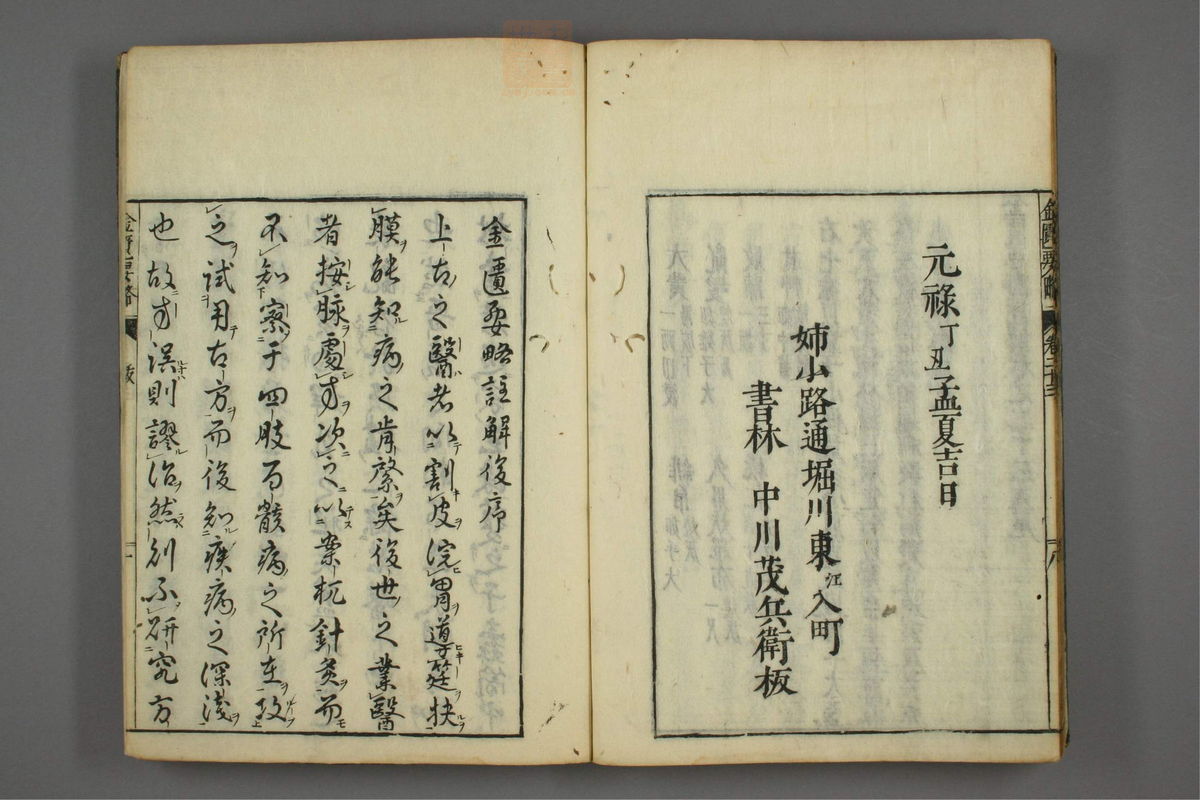 元祿丁丑孟夏吉日
姉小路通堀川東江入町
書林 中川茂兵衛板
金匱要略註解後序
上古之醫者以割皮浣胃導筳抉
膜能知病之肯綮矣後世之業醫
者按脉處方次之以案杌針灸而
不知察于四肢百骸病之所在故
之試用古方而後知疾病之深淺
也故方誤則謬治然則不研究方
金匱要略
跋
一